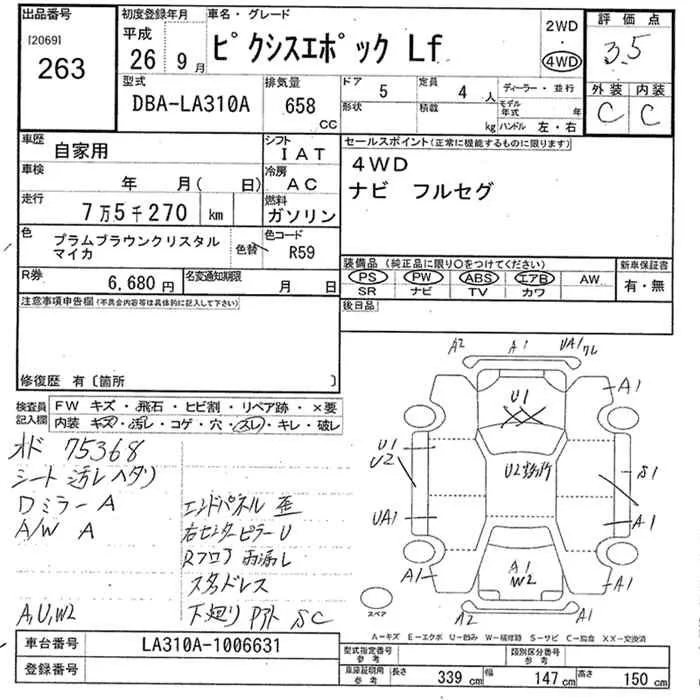 出品番号
[2069]
263
初度登録年月
平成
26 9月
車名・グレード
ピクシスエポック Lf
2WD
・
4WD
評価点
3.5
外装 内装
C C
型式
DBA-LA310A
排気量
658
CC
ドア
5
定員
4 人
形状
積載
kg
ディーラー・並行
モデル年式 年
ハンドル 左・右
車歴
自家用
シフト
IAT
車検
年 月( 日)
冷房
AC
走行
7万5千270 km
燃料
ガソリン
色
プラムブラウンクリスタル
マイカ
色替
色コード
R59
R券
6,680円
名変通知期限
月 日
セールスポイント(正常に機能するものに限ります)
4WD
ナビ フルセグ
装備品(純正品に限り○をつけてください)
PS PW ABS エアB AW
SR ナビ TV カワ
新車保証書
有・無
後日品
注意事項申告欄(不具合内容等は具体的に記入して下さい)
修復歴 有〔箇所 〕
検査員
記入欄
FW キズ・飛石・ヒビ割・リペア跡・×要
内装 キズ・汚レ・コゲ・穴・スレ・キレ・破レ
オド 75368
シート汚レヘタリ
ワミラーA
A/W A
A,U,W2
エンドパネル 歪
右センターピラーU
Rフロア 雨漏レ
スタッドレス
下廻り SC
A2 A1 UA1 ワレ
A1
U1
U1
U2
U2
S1
UA1
A1
A1
A1
W2
A1
A2 A1
スペア
A-キズ E-エクボ U-凹み W-補修跡 S-サビ C-腐食 XX-交換済
車台番号
LA310A-1006631
登録番号
型式指定番号
参考
類別区分番号
参考
車庫証明用
参考
長さ 339 cm 幅 147 cm 高さ 150 cm